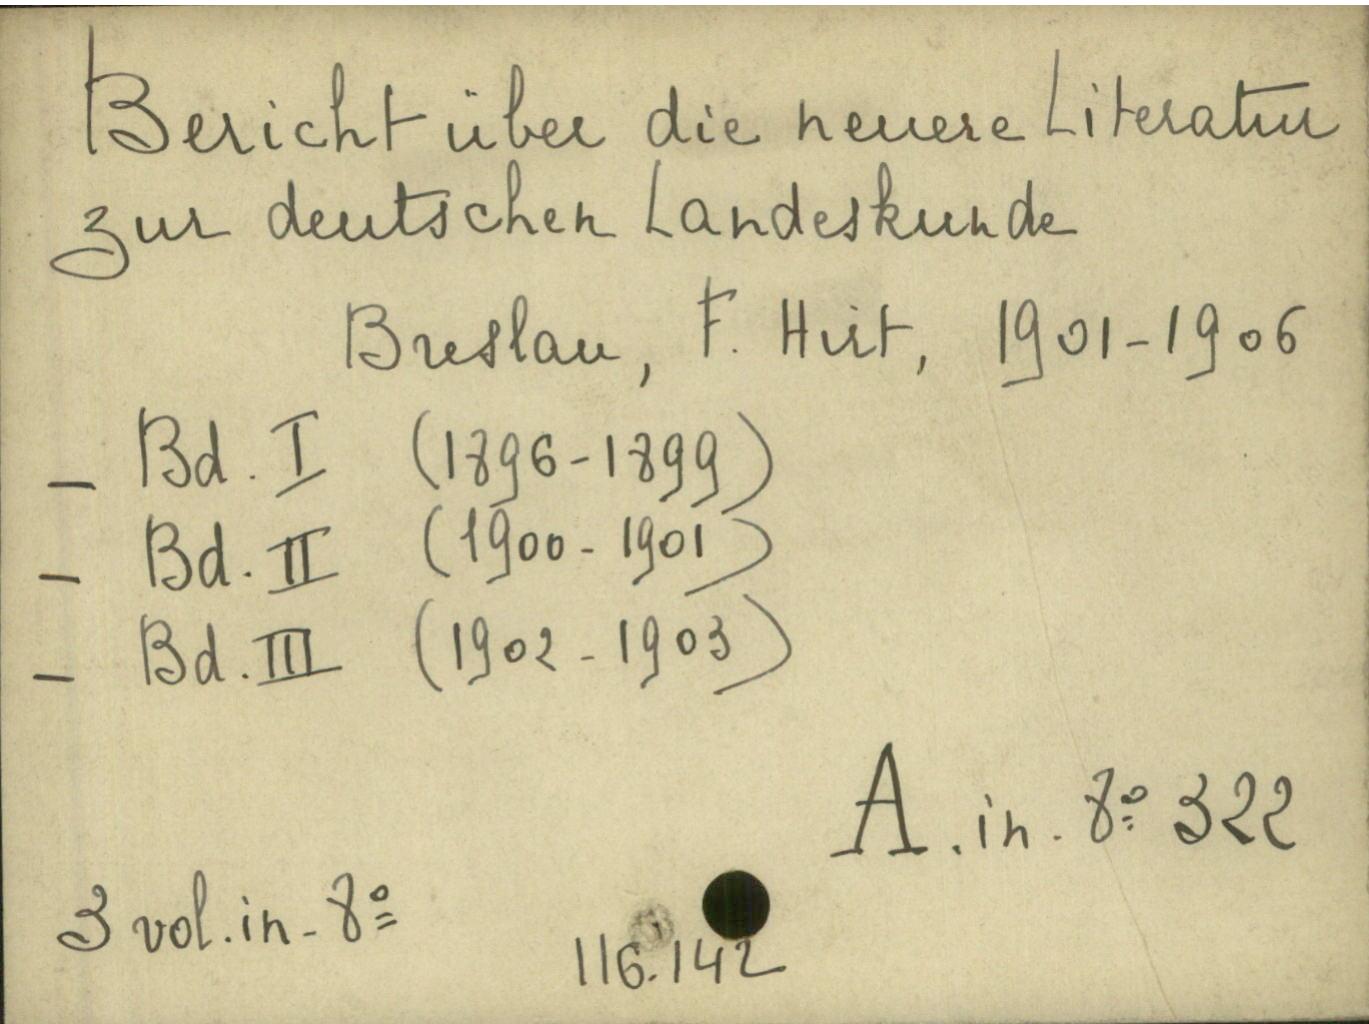 Bericht über die neuere Literatur
zur deutschen Landeskunde
Breslau, F. Hirt, 1901-1906
- Bd. I (1896-1899)
- Bd. II (1900-1901)
- Bd. III (1902-1903)
A. in-8º 322
3 vol. in-8º
116.142